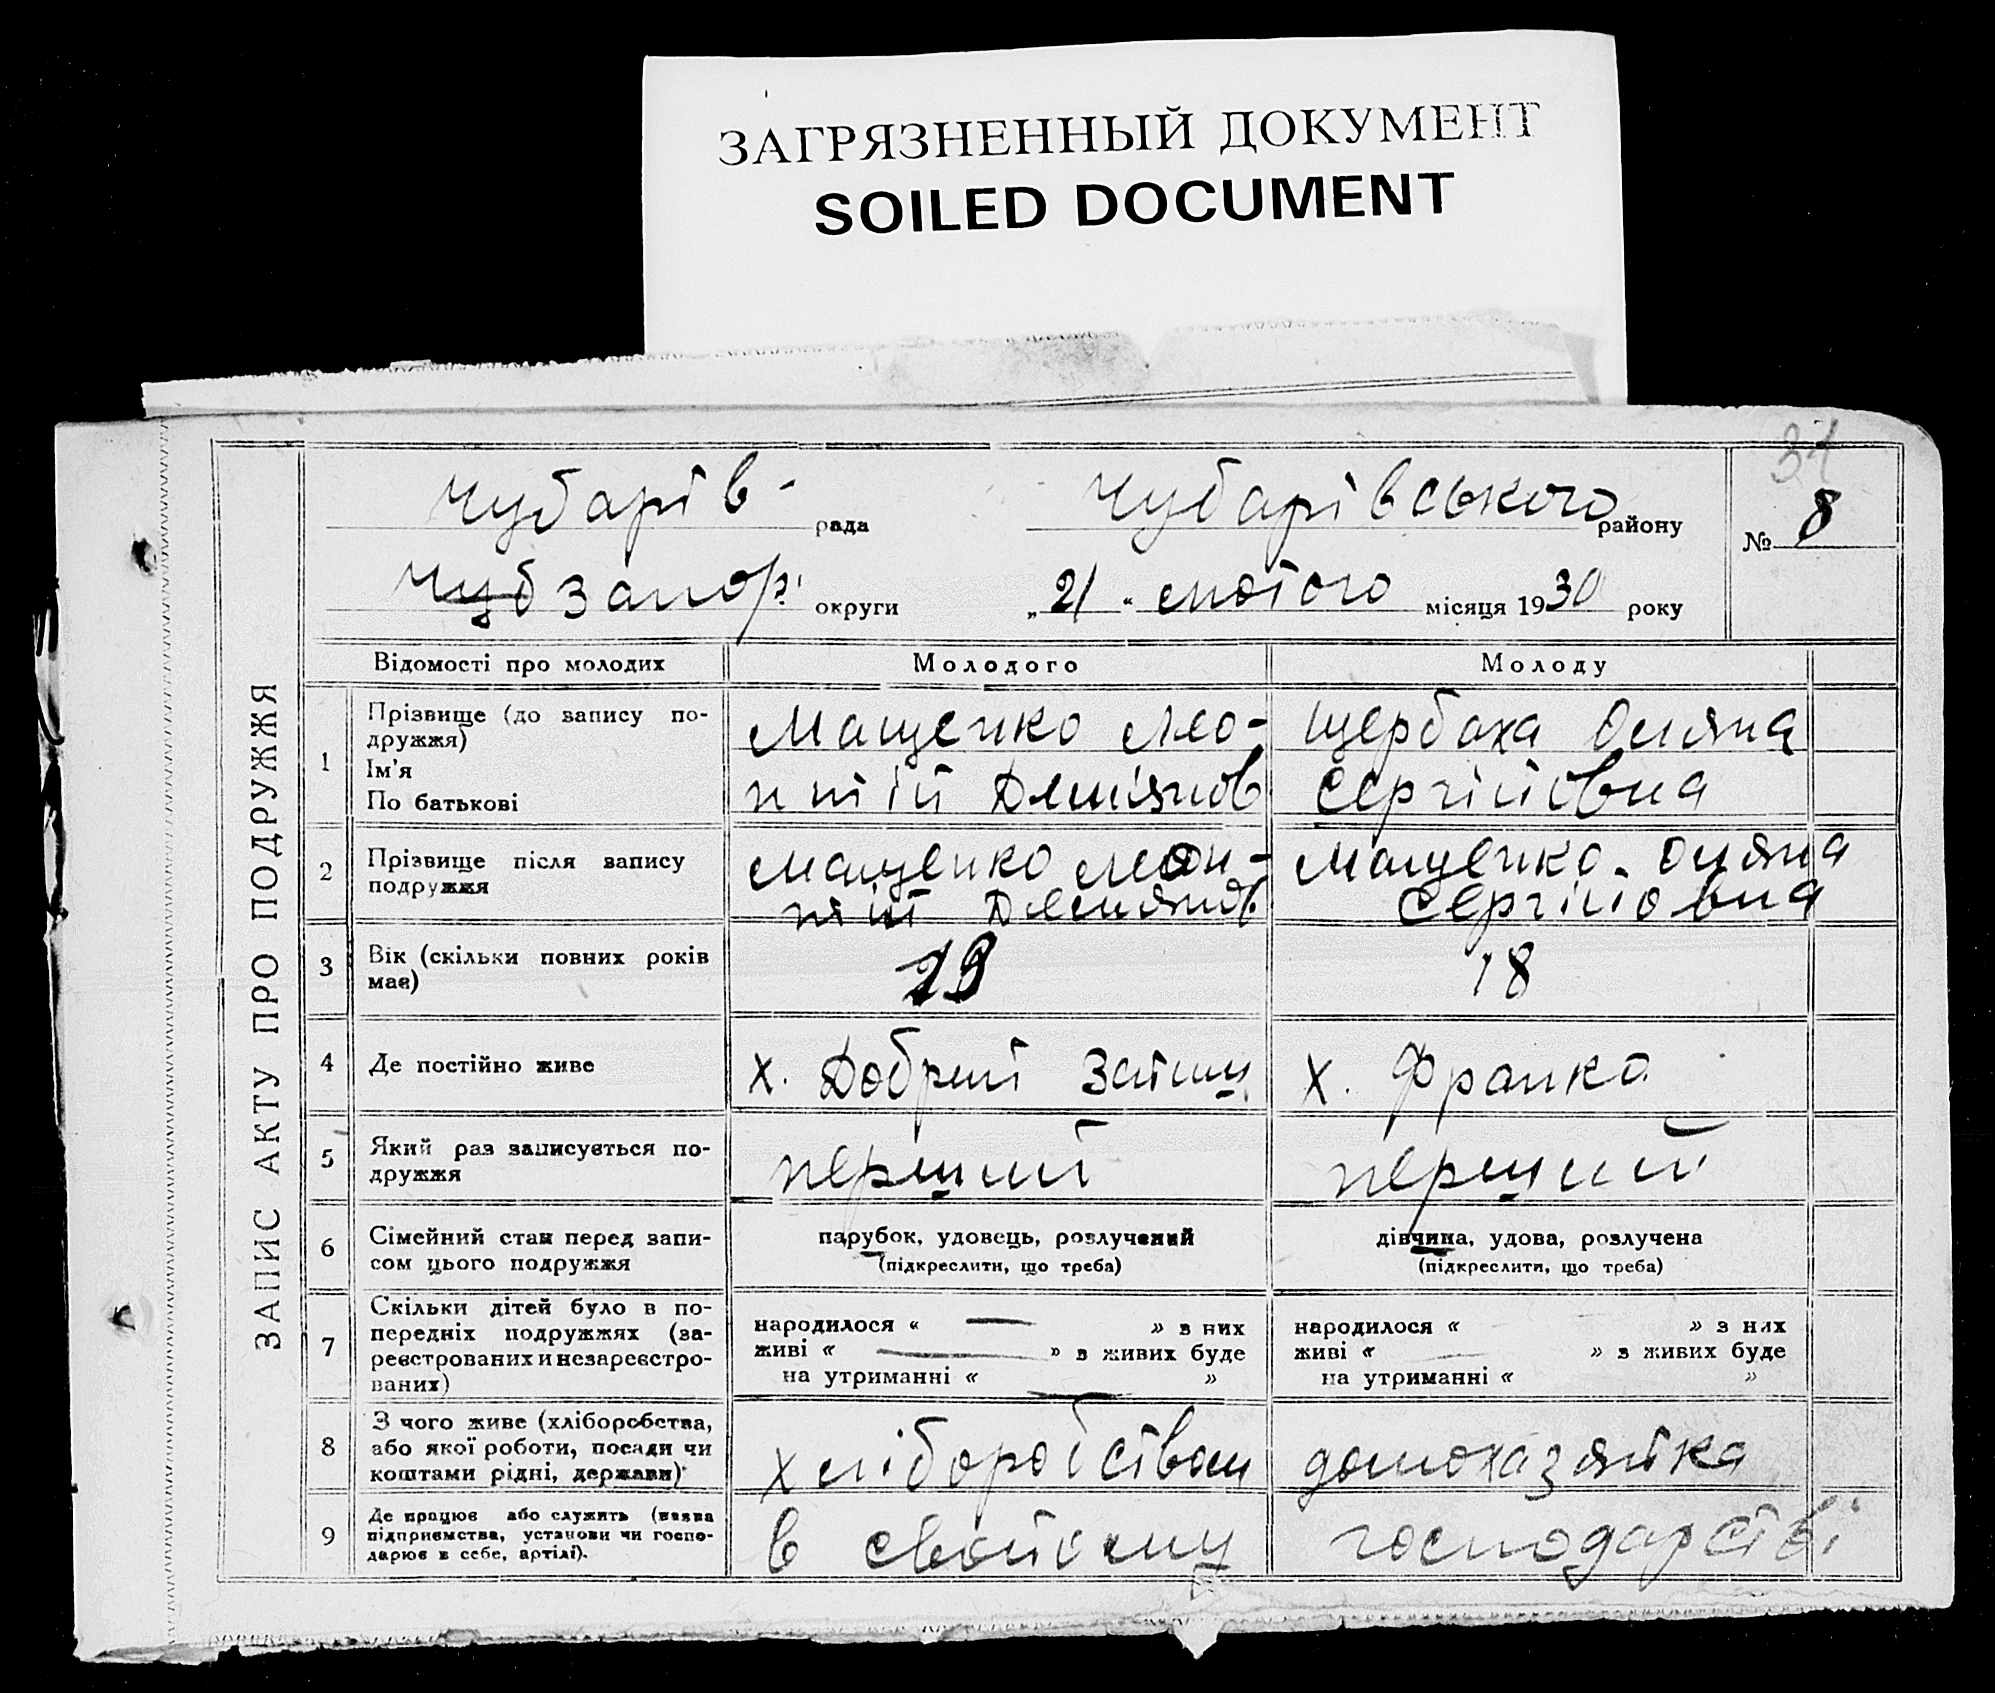 ЗАГРЯЗНЕННЫЙ ДОКУМЕНТ
SOILED DOCUMENT
31
Чубарів- рада Чубарівського району № 8
Чуб Запор. округи „21" лютого місяця 1930 року
ЗАПИС АКТУ ПРО ПОДРУЖЖЯ
Відомості про молодих Молодого Молоду
1 Прізвище (до запису по-
дружжя)
Ім'я
По батькові
Мащенко Лео-
нтій Дем'янов
Щербаха Оляна
Сергійовна
2 Прізвище після запису
подружжя
Мащенко Леон-
тій Демянов
Мащенко Оляна
Сергійовна
3 Вік (скільки повних років
має)
19
18
4 Де постійно живе х. Добрий Затиш х. Франка
5 Який раз записується по-
дружжя
перший
перший
6 Сімейний стан перед запи-
сом цього подружжя
парубок, удовець, розлучений
(підкреслити, що треба)
дівчина, удова, розлучена
(підкреслити, що треба)
7 Скільки дітей було в по-
передніх подружжях (за-
реєстрованих и незареєстро-
ваних)
народилося « — » з них
живі « — » в живих буде
на утриманні « — »
народилося « » з них
живі « » в живих буде
на утриманні « »
8 З чого живе (хліборобства,
або якої роботи, посади чи
коштами рідні, держави)
хліборобством
домохазяйка
9 Де працює або служить (назва
підприємства, установи чи госпо-
дарює в себе, артілі).
в свойому господарстві